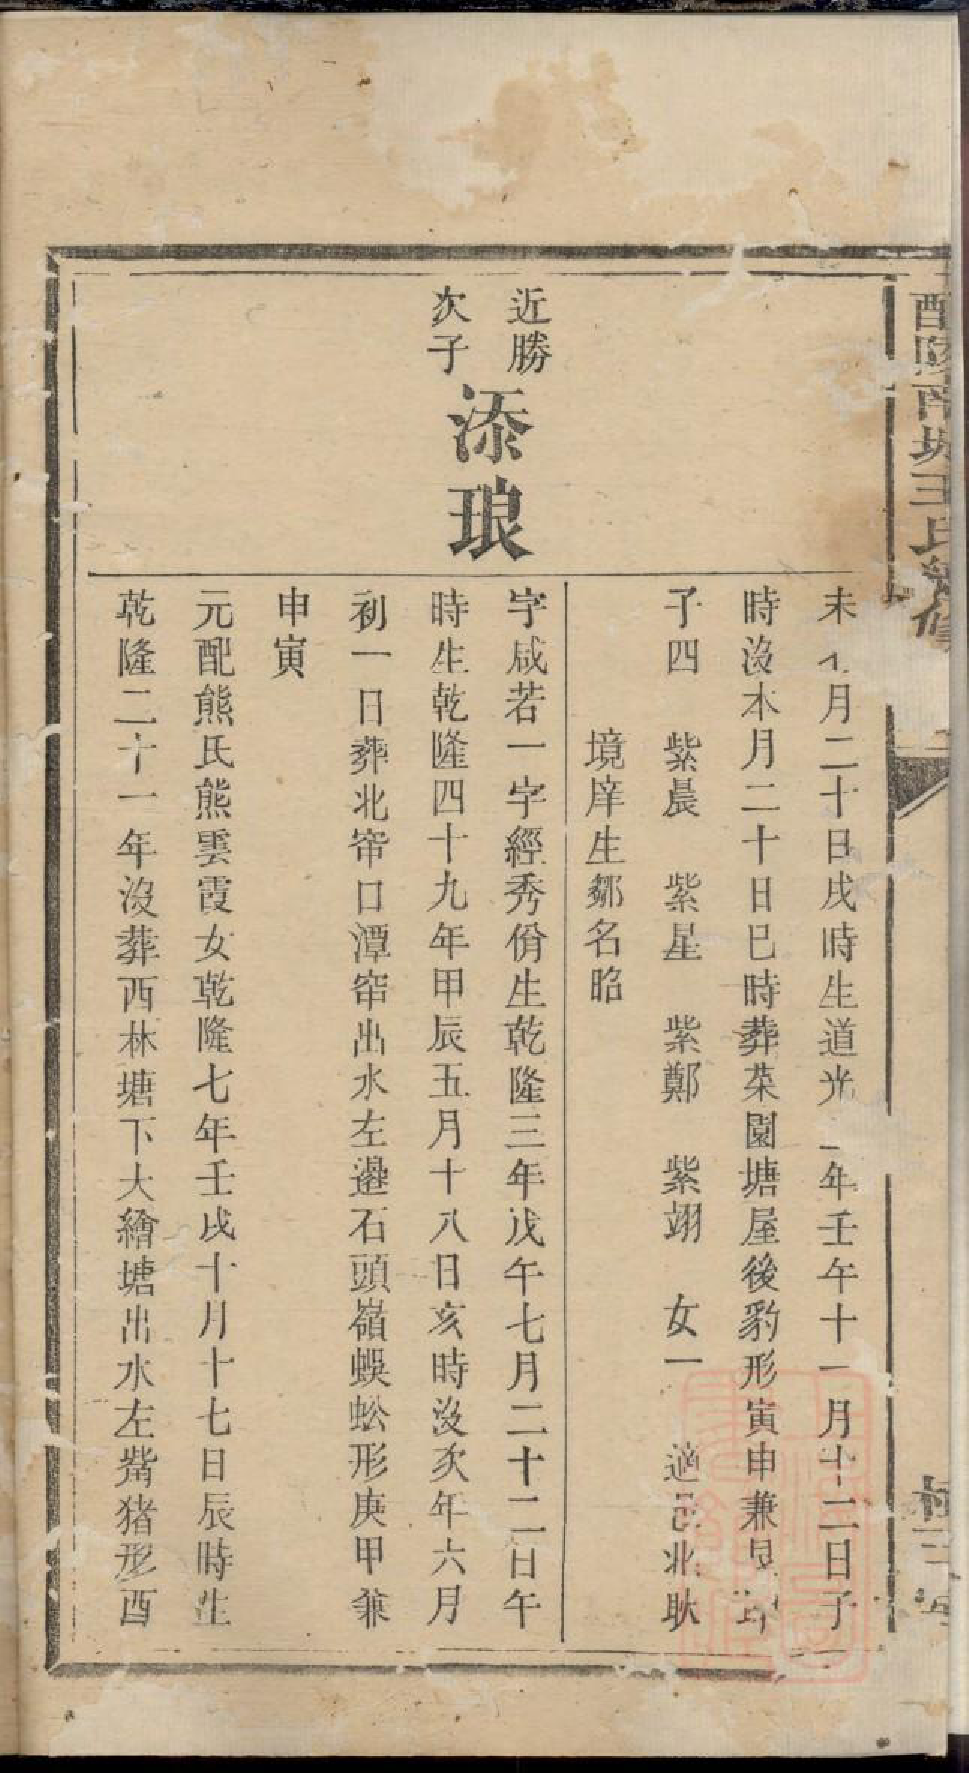 醴陵南城王氏續修
未 月二十日戌時生道光二年壬午十一月十二日子
時沒本月二十日巳時葬菜園塘屋後豹形寅申兼艮坤
子四 紫晨 紫星 紫鄭 紫翊 女一 適邑北耿
境庠生鄒名昭
近勝
次子
添琅
字咸若一字經秀佾生乾隆三年戊午七月二十二日午
時生乾隆四十九年甲辰五月十八日亥時沒次年六月
初一日葬北帘口潭帘出水左邊石頭嶺蜈蚣形庚甲兼
申寅
元配熊氏熊雲霞女乾隆七年壬戌十月十七日辰時生
乾隆二十一年沒葬西林塘下大繪塘出水左觜猪形酉